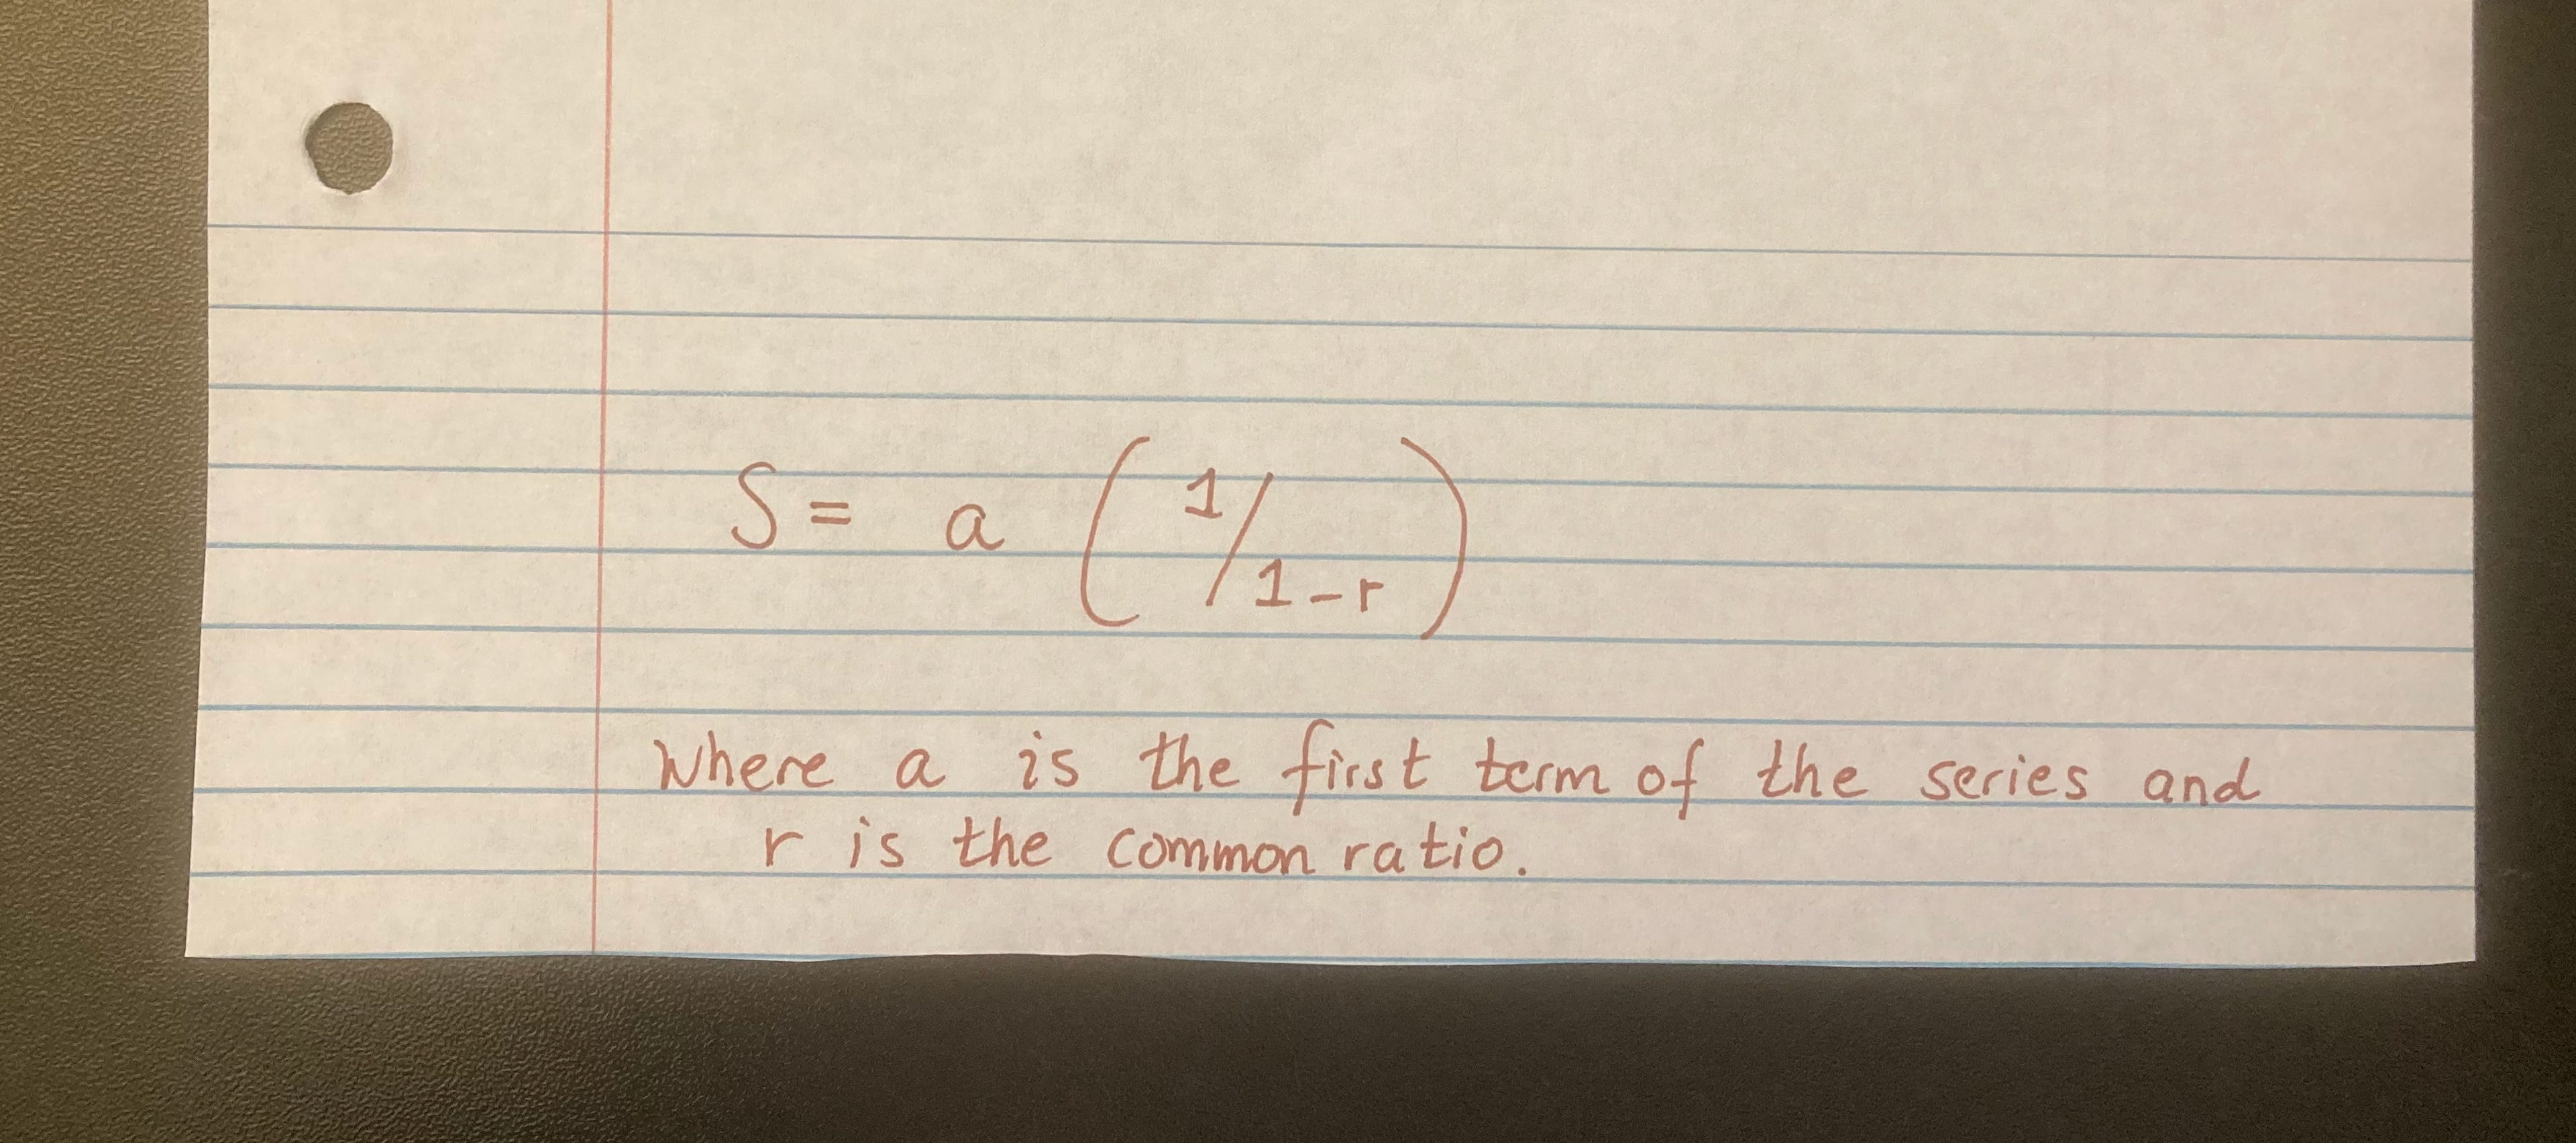 S = a ( 1/1-r )
Where a is the first term of the series and
r is the common ratio.